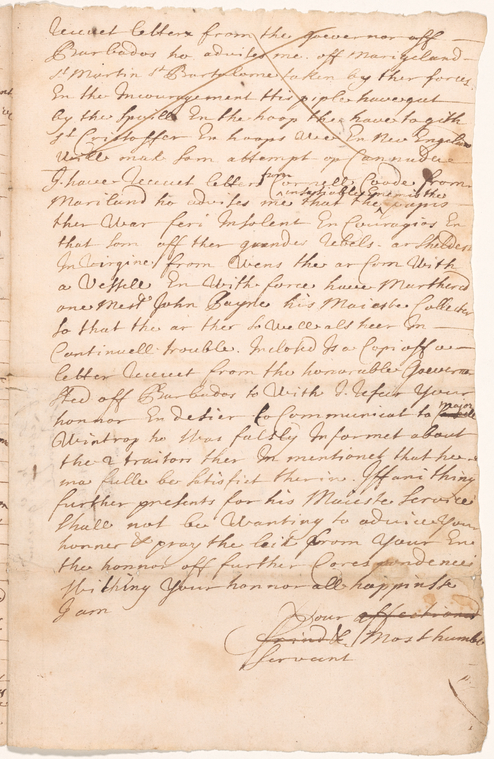 letters from the Governor off
Barbados ho advises me off Marigeland
St Martin St Bartelome taken by ther forces
En the Incouragement this piple have gut
by the Spoills En the hoop the have to gith
St Cristoffer En hoops Wee En New England
Will mak Som attempt op Cannadae
I have letters from Cornell Coode from
Mariland ho advises me that the
ther War feri Insolent En Couragios En
that Som off ther grandes rebels ar
In Virgine from Wens the ar Com With
a Vessell En With force have Marthered
one Mest John Payne his Maiestie Collecter
So that the ar ther So Well als heer In
Continuell trouble. Inclosed Is a Copi off a
letter from the honorable Govern
off Barbados to With I Refeur Your
honnor En desier to Communicat to major
Wintrop ho Was falsly Informet about
the 2 traitors ther In mentioned that he
ma fulle be Satisfict therin. Iff ani thing
further presents for his Maieste Service
Shall not be Wanting to advice Your
honner & pray the leik from Your En
the honnor off further Corespondence
Withing Your honnor all happinsse
I am
Your affectionat
friend & Most humble
Servant